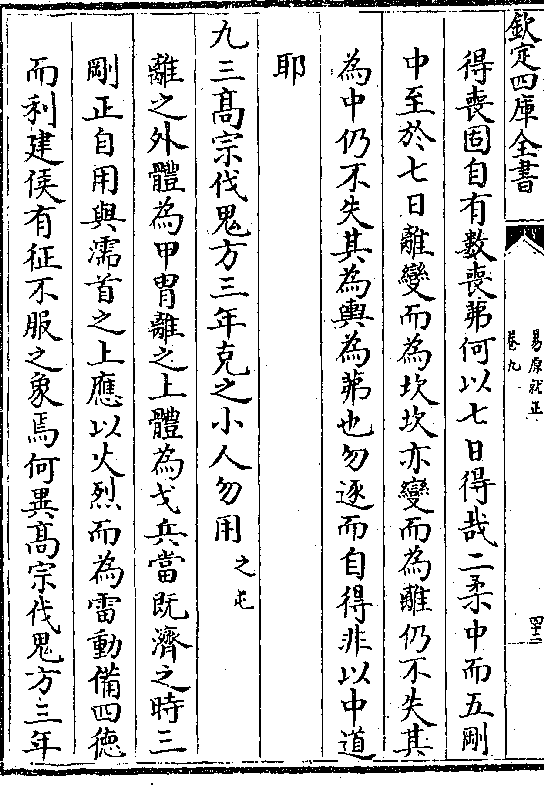 欽定四庫全書
易原就正
卷九
四十三
得喪固自有數喪茀何以七日得哉二柔中而五剛
中至於七日離變而為坎坎亦變而為離仍不失其
為中仍不失其為輿為茀也勿逐而自得非以中道
耶
九三髙宗伐鬼方三年克之小人勿用之屯
離之外體為甲冑離之上體為戈兵當既濟之時三
剛正自用與濡首之上應以火烈而為雷動備四徳
而利建侯有征不服之象焉何異髙宗伐鬼方三年